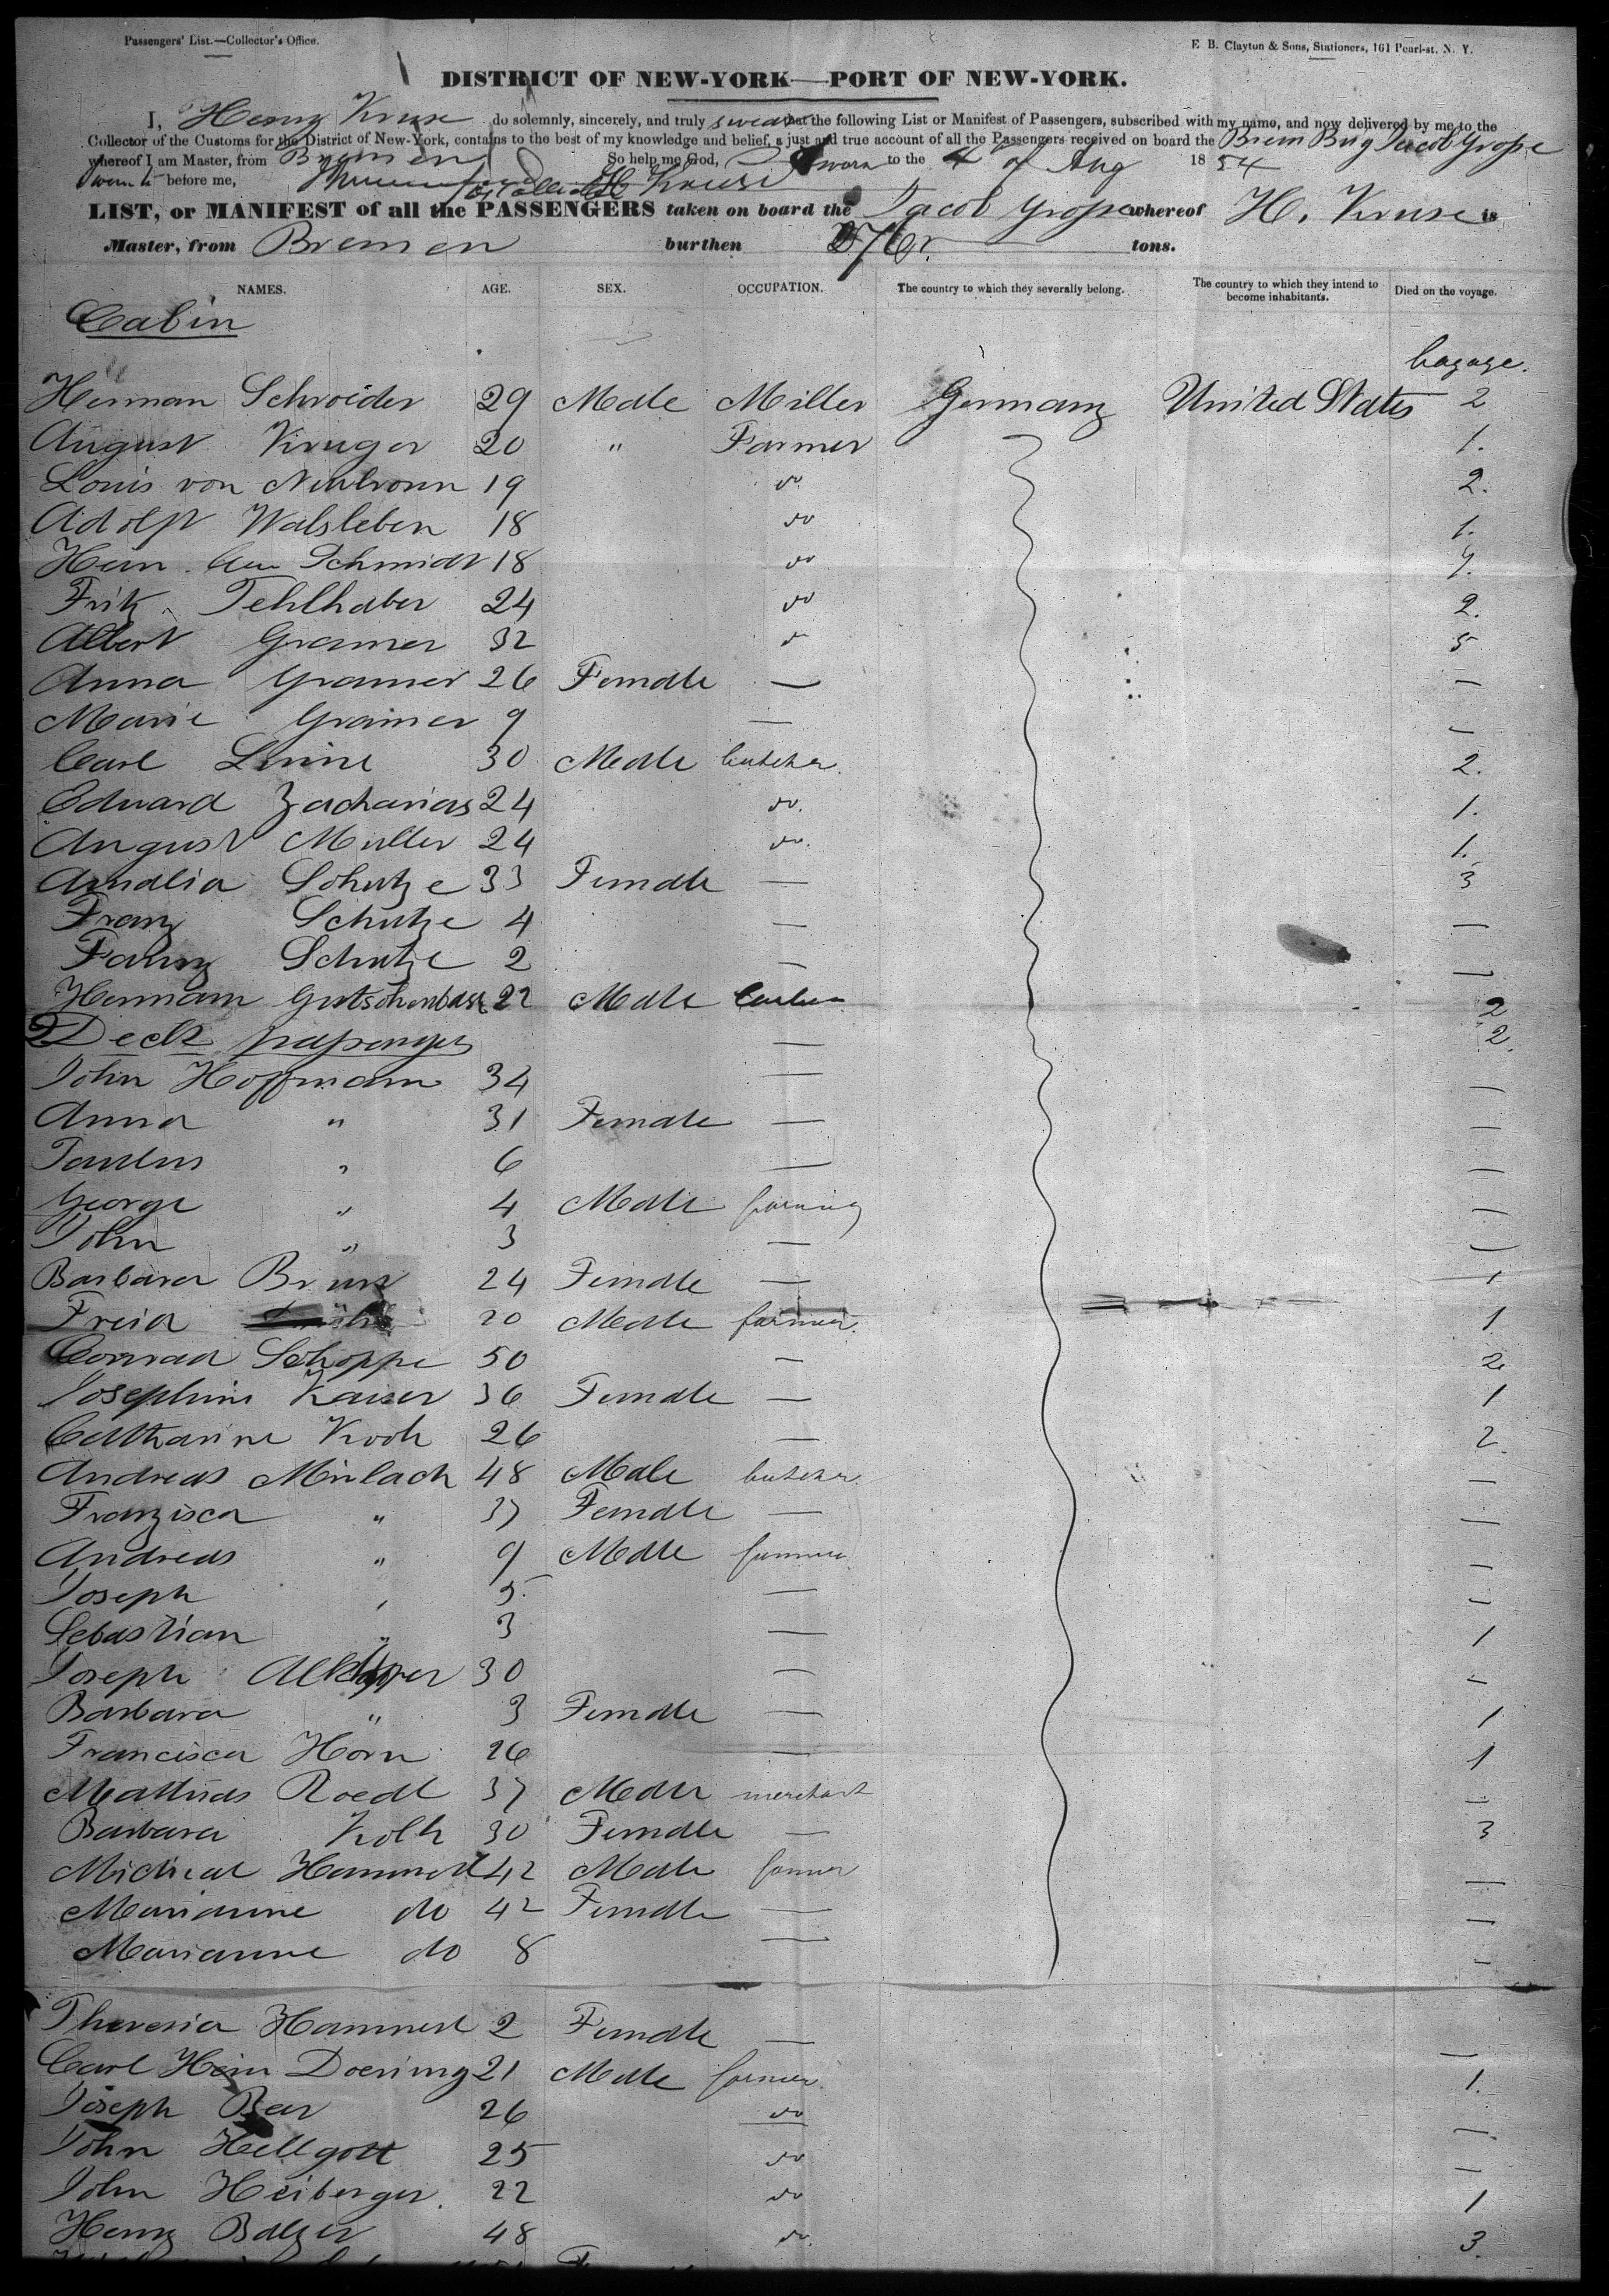 Passengers' List.—Collector's Office.
E. B. Clayton & Sons, Stationers, 161 Pearl-st. N. Y.
DISTRICT OF NEW-YORK—PORT OF NEW-YORK.
I, Henry Kruse do solemnly, sincerely, and truly swear that the following List or Manifest of Passengers, subscribed with my name, and now delivered by me to the
Collector of the Customs for the District of New-York, contains to the best of my knowledge and belief, a just and true account of all the Passengers received on board the Brem Brig Jacob Grope
whereof I am Master, from Bremen So help me God, Sworn to the 4 of Aug 1854
Sworn to before me, H Kruse
LIST, or MANIFEST of all the PASSENGERS taken on board the Jacob Grope whereof H. Kruse is
Master, from Bremen burthen 276 tons.
NAMES. AGE. SEX. OCCUPATION. The country to which they severally belong. The country to which they intend to become inhabitants. Died on the voyage.
Cabin
bagage.
Herman Schroider 29 Male Miller Germany United States 2
August Kruger 20 " Farmer 1.
Louis von 19 do 2.
Adolph Walsleben 18 do 1.
Hein. Schmidt 18 do
Fritz Fehlhaber 24 do 2.
Albert Gramer 32 5
Anna Gramer 26 Female — —
Marie Gramer 9 — —
Carl 30 Male butcher. 2.
Eduard Zacharias 24 do. 1.
August Muller 24 do. 1.
Amalia Schutze 33 Female — 3
Franz Schutze 4 — —
Fanny Schutze 2 — —
Hermann 22 Male 2
Deck passenger — 2.
John Hoffmann 34 — —
Anna " 31 Female — —
Paulus " 6 — —
George " 4 Male farming —
John " 3 — —
Barbara 24 Female — 1
20 Male farmer. 1
Conrad Schoppe 50 — 2
Josephine Kaiser 36 Female — 1
Catharine Koch 26 — 2.
Andreas Minlach 48 Male butcher —
Franzisca " 37 Female — —
Andreas " 9 Male farmer —
Joseph " 5 — —
Sebastian " 3 — 1
Joseph 30 — —
Barbara " 3 Female — 1
Francisca Horn 26 — 1
Mathias Roedl 37 Male merchant —
Barbara Kolb 30 Female — 3
Michael Hammerl 42 Male farmer —
Marianne do 42 Female — —
Marianne do 8 — —
Theresia Hammerl 2 Female — —
Carl Hein Doering 21 Male farmer. 1.
Joseph Bear 26 do —
John Hellgott 25 do —
John Heiberger. 22 do 1
Henry Balzer 48 do. 3.